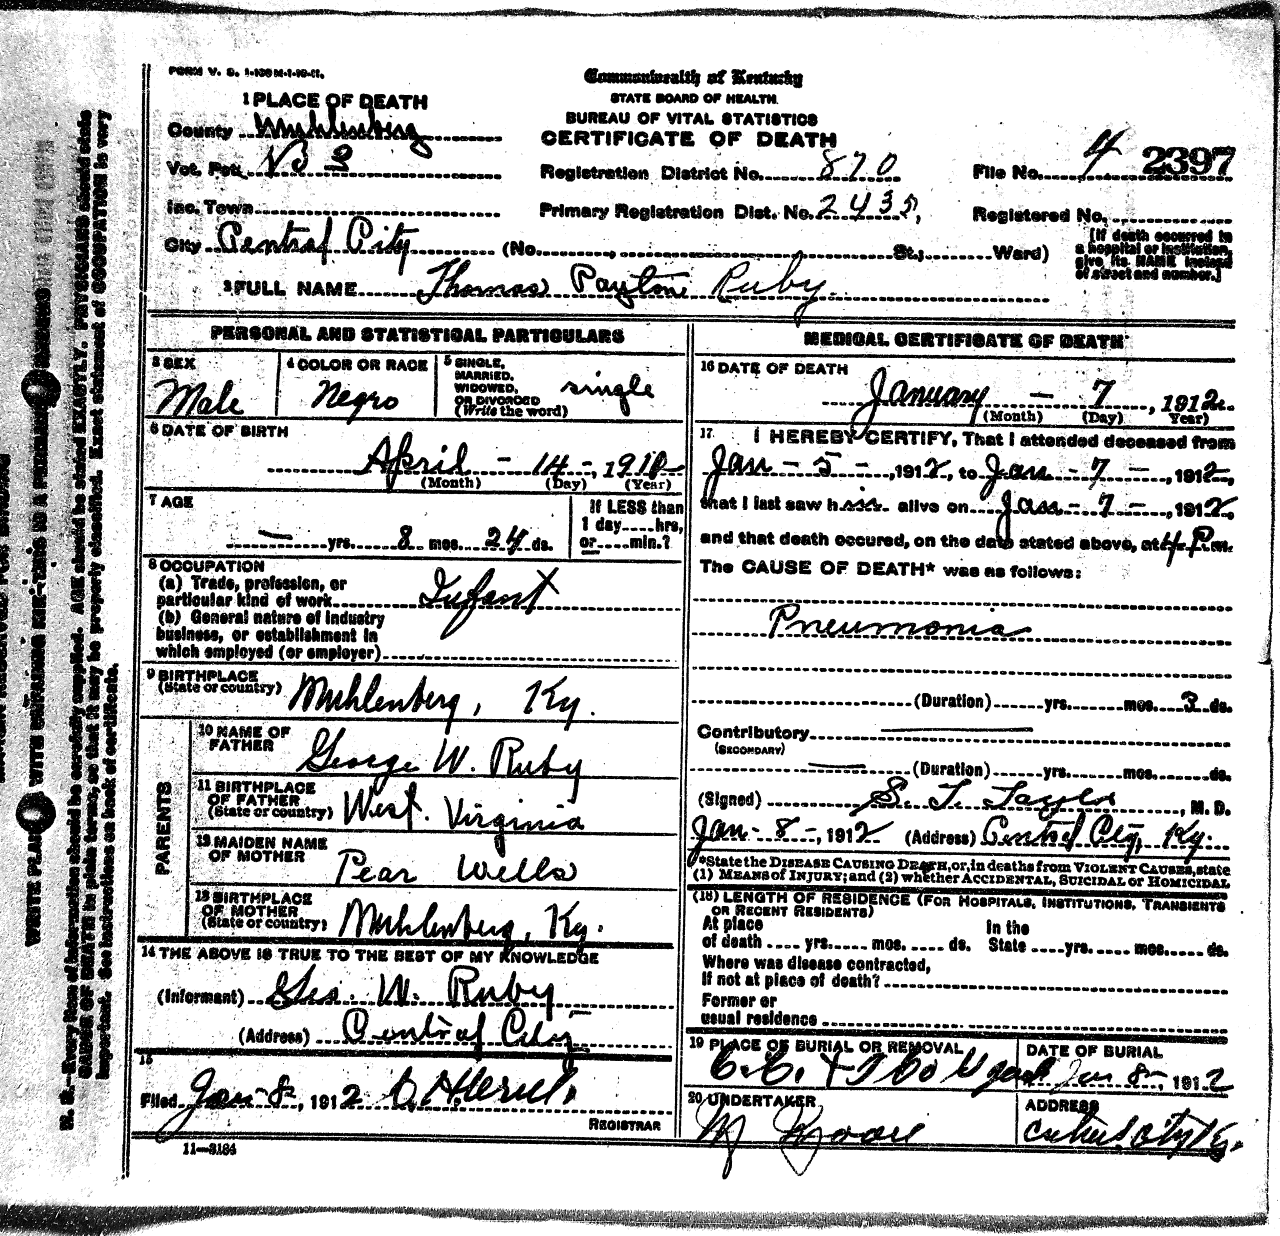 FORM V. S. 1-130 M-1-10-11.
Commonwealth of Kentucky
STATE BOARD OF HEALTH.
BUREAU OF VITAL STATISTICS
CERTIFICATE OF DEATH
1 PLACE OF DEATH
County Muhlenberg
Vot. Pct.
Registration District No. 870
File No. 4 2397
Inc. Town
Primary Registration Dist. No. 2435,
Registered No.
City Central City (No. , St.; Ward)
[If death occurred in a hospital or institution, give its NAME instead of street and number.]
2 FULL NAME Thomas Payton Ruby
PERSONAL AND STATISTICAL PARTICULARS
3 SEX
Male
4 COLOR OR RACE
Negro
5 SINGLE, MARRIED, WIDOWED, OR DIVORCED (Write the word)
single
6 DATE OF BIRTH
April - 14 -, 1910
(Month) (Day) (Year)
7 AGE
— yrs. 8 mos. 24 ds.
If LESS than 1 day hrs, or min.?
8 OCCUPATION
(a) Trade, profession, or particular kind of work Infant
(b) General nature of industry business, or establishment in which employed (or employer)
9 BIRTHPLACE (State or country) Muhlenberg, Ky.
PARENTS
10 NAME OF FATHER George W. Ruby
11 BIRTHPLACE OF FATHER (State or country) West. Virginia
12 MAIDEN NAME OF MOTHER Pear Wells
13 BIRTHPLACE OF MOTHER (State or country) Muhlenberg, Ky.
14 THE ABOVE IS TRUE TO THE BEST OF MY KNOWLEDGE
(Informant) Geo. W. Ruby
(Address) Central City
15
Filed Jan-8-, 1912
REGISTRAR
11-3184
MEDICAL CERTIFICATE OF DEATH
16 DATE OF DEATH
January - 7, 1912
(Month) (Day) Year)
17 I HEREBY CERTIFY, That I attended deceased from
Jan - 5 -, 1912, to Jan - 7 -, 1912,
that I last saw him alive on Jan - 7 -, 1912,
and that death occured, on the date stated above, at 4 P.m.
The CAUSE OF DEATH* was as follows:
Pneumonia
(Duration) yrs. mos. 3 ds.
Contributory —
(SECONDARY)
— (Duration) yrs. mos. ds.
(Signed) S. T. Taylor, M. D.
Jan-8-, 1912 (Address) Central City, Ky.
*State the DISEASE CAUSING DEATH, or, in deaths from VIOLENT CAUSES, state
(1) MEANS of INJURY; and (2) whether ACCIDENTAL, SUICIDAL or HOMICIDAL
(18) LENGTH OF RESIDENCE (FOR HOSPITALS, INSTITUTIONS, TRANSIENTS
OR RECENT RESIDENTS)
At place of death yrs. mos. ds. In the State yrs. mos. ds.
Where was disease contracted,
If not at place of death?
Former or
usual residence
19 PLACE OF BURIAL OR REMOVAL
DATE OF BURIAL
Jan 8-, 1912
20 UNDERTAKER
ADDRESS
Central City Ky.
N. B.—Every item of information should be carefully supplied. AGE should be stated EXACTLY. PHYSICIANS should state
CAUSE OF DEATH in plain terms, so that it may be properly classified. Exact statement of OCCUPATION is very
important. See instructions on back of certificate.